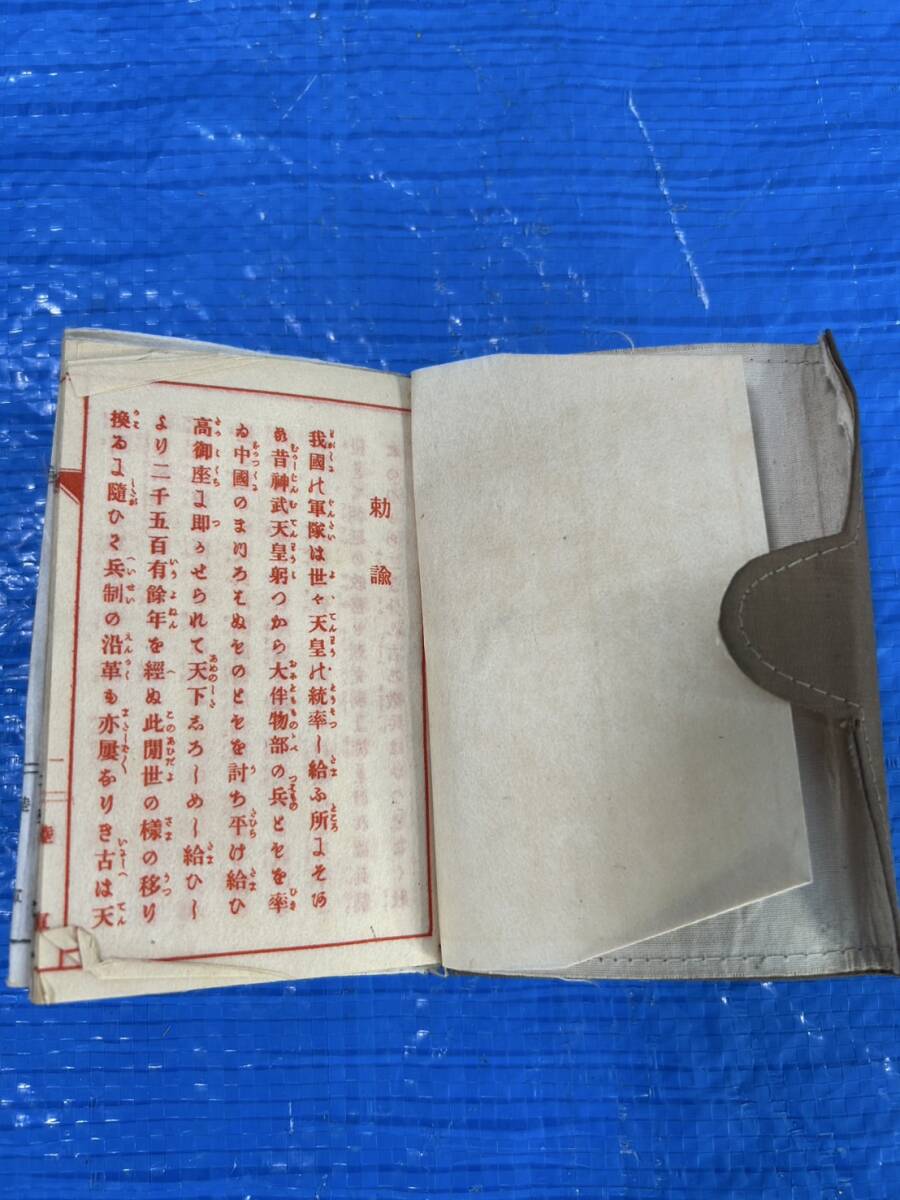 勅諭
我國の軍隊は世々天皇の統率し給ふ所にそある
昔神武天皇躬つから大伴物部の兵ともを率
ゐ中國のまつろはぬものともを討ち平け給ひ
高御座に即かせられて天下しろしめし給ひし
より二千五百有餘年を經ぬ此間世の樣の移り
換るに隨ひて兵制の沿革も亦屢なりき古は天